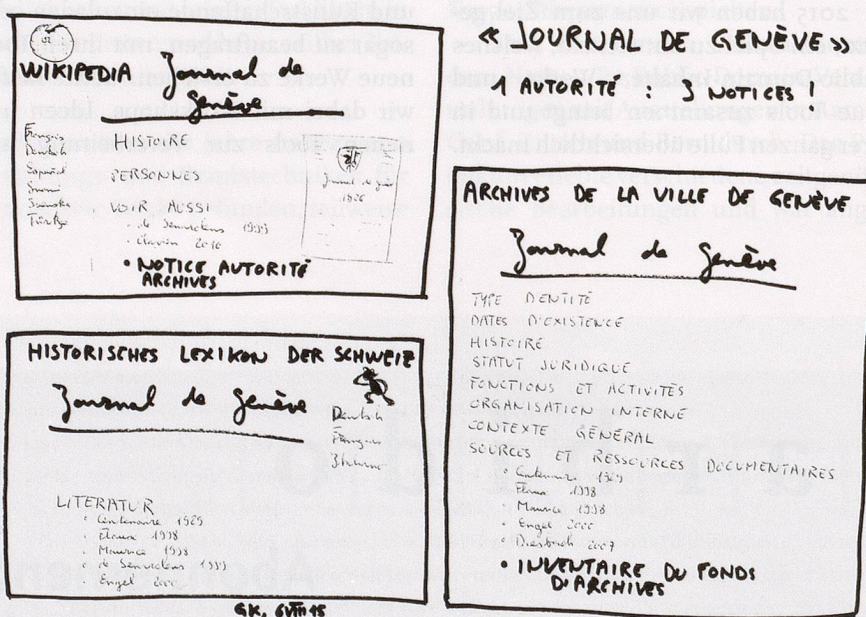 « JOURNAL DE GENÈVE »
1 AUTORITÉ : 3 NOTICES !
WIKIPEDIA
Journal de
Genève
Français
Deutsch
Suomi
Svenska
Türkçe
HISTOIRE
PERSONNES
VOIR AUSSI
de Senarclens 1999
Clavien 2010
• NOTICE AUTORITÉ
ARCHIVES
Journal de Genève
1826
HISTORISCHES LEXIKON DER SCHWEIZ
Journal de Genève
Deutsch
Français
Italiano
LITERATUR
• Centenaire 1929
• Maurice 1998
de Senarclens 1999
Engel 2000
ARCHIVES DE LA VILLE DE GENÈVE
Journal de Genève
TYPE D'ENTITÉ
DATES D'EXISTENCE
HISTOIRE
STATUT JURIDIQUE
FONCTIONS ET ACTIVITÉS
ORGANISATION INTERNE
CONTEXTE GÉNÉRAL
SOURCES ET RESSOURCES DOCUMENTAIRES
• Centenaire 1929
1998
• Maurice 1998
• Engel 2000
• Dierbach 2007
• INVENTAIRE DU FONDS
D'ARCHIVES
GK, 6VIII15